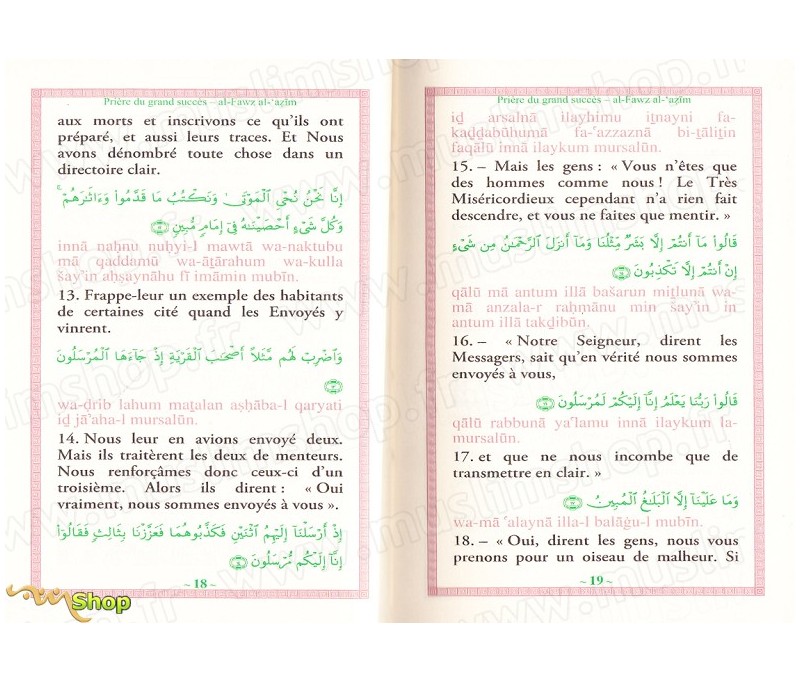 Prière du grand succès – al-Fawz al-‘aẓîm
aux morts et inscrivons ce qu’ils ont
préparé, et aussi leurs traces. Et Nous
avons dénombré toute chose dans un
directoire clair.
إِنَّا نَحْنُ نُحْىِ الْمَوْتَىٰ وَنَكْتُبُ مَا قَدَّمُوا۟ وَءَاثَـٰرَهُمْ ۚ
وَكُلَّ شَىْءٍ أَحْصَيْنَـٰهُ فِىٓ إِمَامٍ مُّبِينٍ
innā naḥnu nuḥyi-l mawtā wa-naktubu
mā qaddamū wa-āṯārahum wa-kulla
šay’in aḥṣaynāhu fī imāmin mubīn.
13. Frappe-leur un exemple des habitants
de certaines cité quand les Envoyés y
vinrent.
وَاضْرِبْ لَهُم مَّثَلًا أَصْحَـٰبَ الْقَرْيَةِ إِذْ جَآءَهَا الْمُرْسَلُونَ
wa-ḍrib lahum maṯalan aṣḥāba-l qaryati
iḏ jā’aha-l mursalūn.
14. Nous leur en avions envoyé deux.
Mais ils traitèrent les deux de menteurs.
Nous renforçâmes donc ceux-ci d’un
troisième. Alors ils dirent : « Oui
vraiment, nous sommes envoyés à vous ».
إِذْ أَرْسَلْنَآ إِلَيْهِمُ اثْنَيْنِ فَكَذَّبُوهُمَا فَعَزَّزْنَا بِثَالِثٍ فَقَالُوٓا۟
إِنَّآ إِلَيْكُم مُّرْسَلُونَ
~ 18 ~
Shop
Prière du grand succès – al-Fawz al-‘aẓîm
iḏ arsalnā ilayhimu iṯnayni fa-
kaḏḏabūhumā fa-‘azzaznā bi-ṯāliṯin
faqālū innā ilaykum mursalūn.
15. – Mais les gens : « Vous n’êtes que
des hommes comme nous ! Le Très
Miséricordieux cependant n’a rien fait
descendre, et vous ne faites que mentir. »
قَالُوا۟ مَآ أَنتُمْ إِلَّا بَشَرٌ مِّثْلُنَا وَمَآ أَنزَلَ الرَّحْمَـٰنُ مِن شَىْءٍ
إِنْ أَنتُمْ إِلَّا تَكْذِبُونَ
qālū mā antum illā bašarun miṯlunā wa-
mā anzala-r raḥmānu min šay’in in
antum illā takḏibūn.
16. – « Notre Seigneur, dirent les
Messagers, sait qu’en vérité nous sommes
envoyés à vous,
قَالُوا۟ رَبُّنَا يَعْلَمُ إِنَّآ إِلَيْكُمْ لَمُرْسَلُونَ
qālū rabbunā ya‘lamu innā ilaykum la-
mursalūn.
17. et que ne nous incombe que de
transmettre en clair. »
وَمَا عَلَيْنَآ إِلَّا الْبَلَـٰغُ الْمُبِينُ
wa-mā ‘alaynā illa-l balāġu-l mubīn.
18. – « Oui, dirent les gens, nous vous
prenons pour un oiseau de malheur. Si
~ 19 ~
www.muslimshop.fr